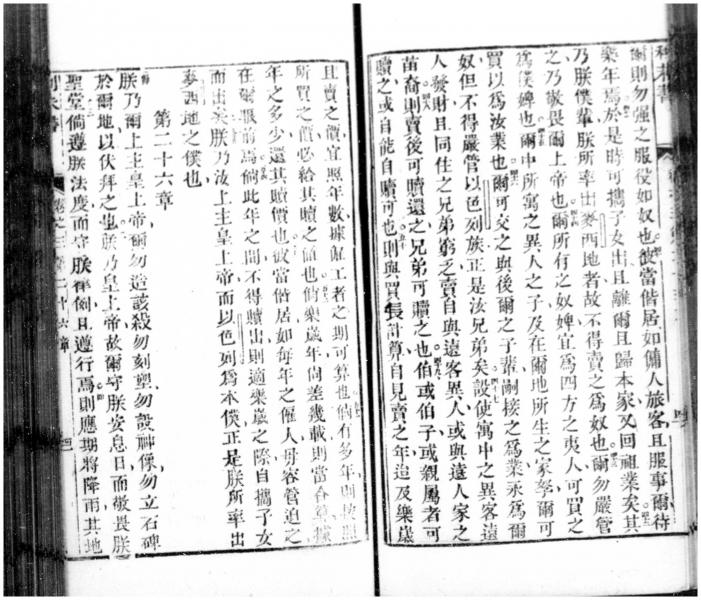 爾則勿強之服役如奴也彼當偕居如傭人旅客且服事爾待
樂年焉於是時可攜子女出且離爾且歸本家又回祖業矣其
乃朕僕輩朕所率出麥西地者故不得賣之為奴也爾勿嚴管
之乃敬畏爾上帝也爾所有之奴婢宜為四方之夷人可買之
為僕婢也爾中所寓之異人之子及在爾地所生之家孥爾可
買以為汝業也爾可交之與後爾之子輩嗣接之為業永為爾
奴但不得嚴管以色列族正是汝兄弟矣設使寓中之異客遠
人發財且同住之兄弟窮乏賣自與遠客異人或與遠人家之
苗裔則賣後可贖還之兄弟可贖之也伯或伯子或親屬者可
贖之或自能自贖可也則與買長計算自見賣之年迨及樂歲
且賣之價宜照年數據傭工者之期可算也倘有多年則
所買之價必給其贖之値也倘樂歲年尚差幾載則當
年之多少還其贖價也彼當偕居如每年之僱人毋容管迫之
在爾眼前焉倘此年之間不得贖出則適樂歲之際自攜子女
而出矣朕乃汝上主皇上帝而以色列為本僕正是朕所率出
麥西地之僕也
第二十六章
朕乃爾上主皇上帝爾勿造該殺勿刻塑勿設神像勿立石碑
於爾地以伏拜之蓋朕乃皇上帝故爾守朕安息日而敬畏朕
聖堂倘遵朕法度而守朕律例且遵行焉則應期將降雨其地
二十六章